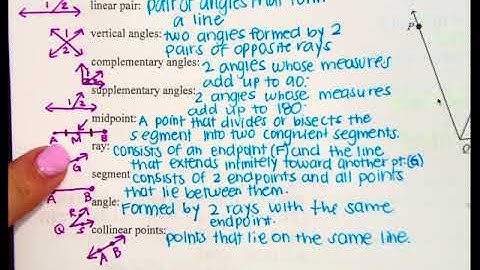 linear pair: pair of angles that form
a line
vertical angles: two angles formed by 2
pairs of opposite rays
complementary angles: 2 angles whose measures
add up to 90.
supplementary angles: 2 angles whose measures
add up to 180.
midpoint: A point that divides or bisects the
segment into two congruent segments.
ray: consists of an endpoint (F) and the line
that extends infinitely toward another pt. (G)
segment consists of 2 endpoints and all points
that lie between them.
angle: Formed by 2 rays with the same
endpoint.
collinear points: points that lie on the same line.
1 2
1
2
1
2
1 2
A M B
G
A B
R
Q S
A B
P